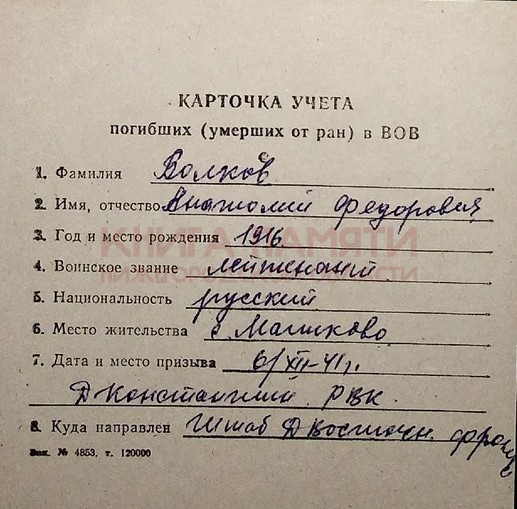 КАРТОЧКА УЧЕТА
погибших (умерших от ран) в ВОВ
1. Фамилия Волков
2. Имя, отчество Анатолий Федорович
3. Год и место рождения 1916
КНИГА ПАМЯТИ
4. Воинское звание лейтенант
НИЖЕГОРОДСКОЙ ОБЛАСТИ
5. Национальность русский
6. Место жительства с Машково
7. Дата и место призыва 6/XII-41г.
Д Константин РВК.
8. Куда направлен Штаб ДВосточн. фронт
Зак. № 4853, т. 120000